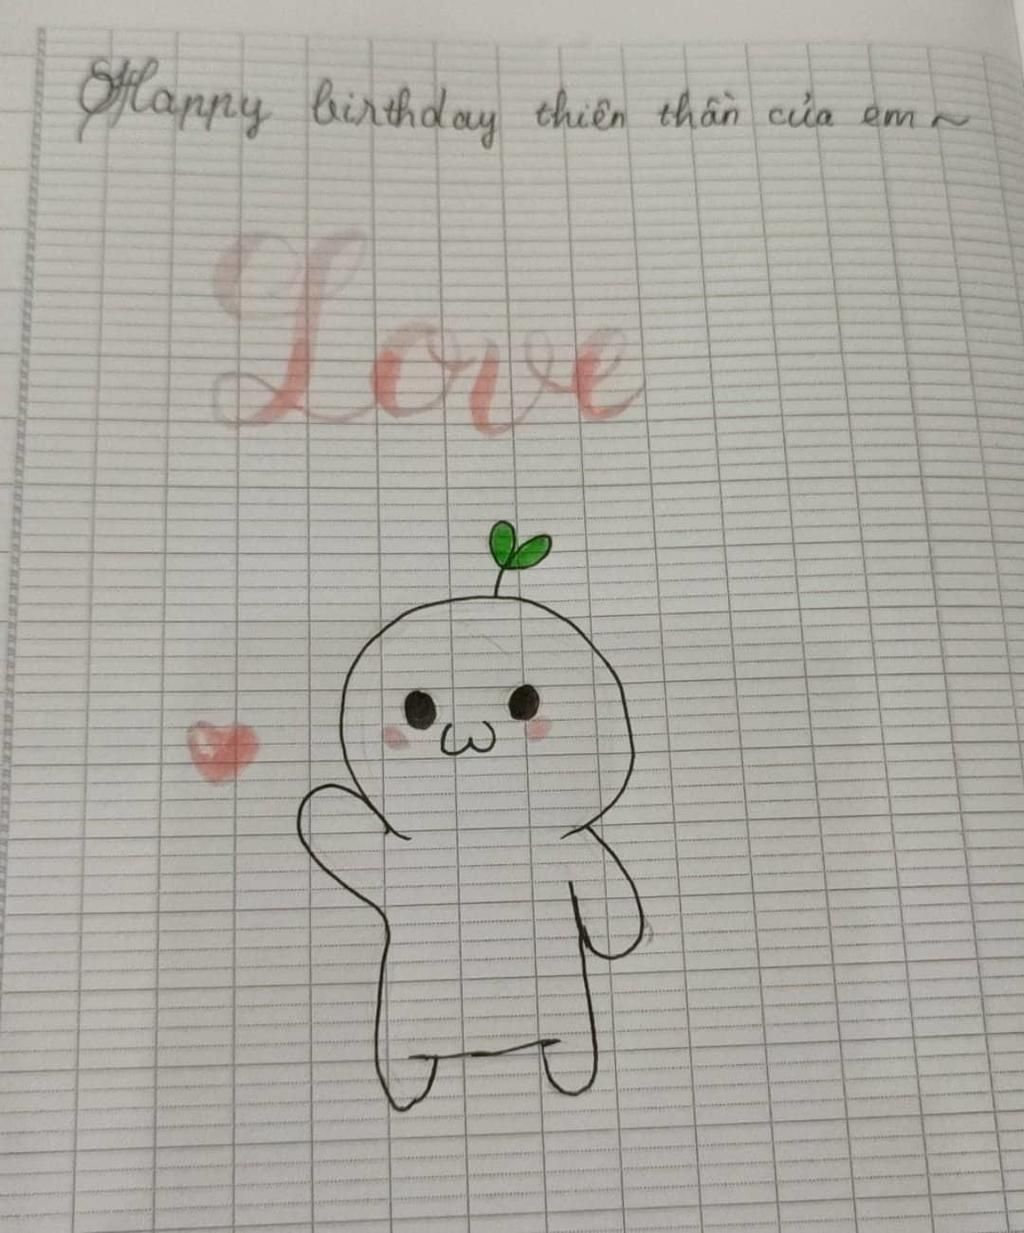 Happy birthday thiên thần của em ~
Love